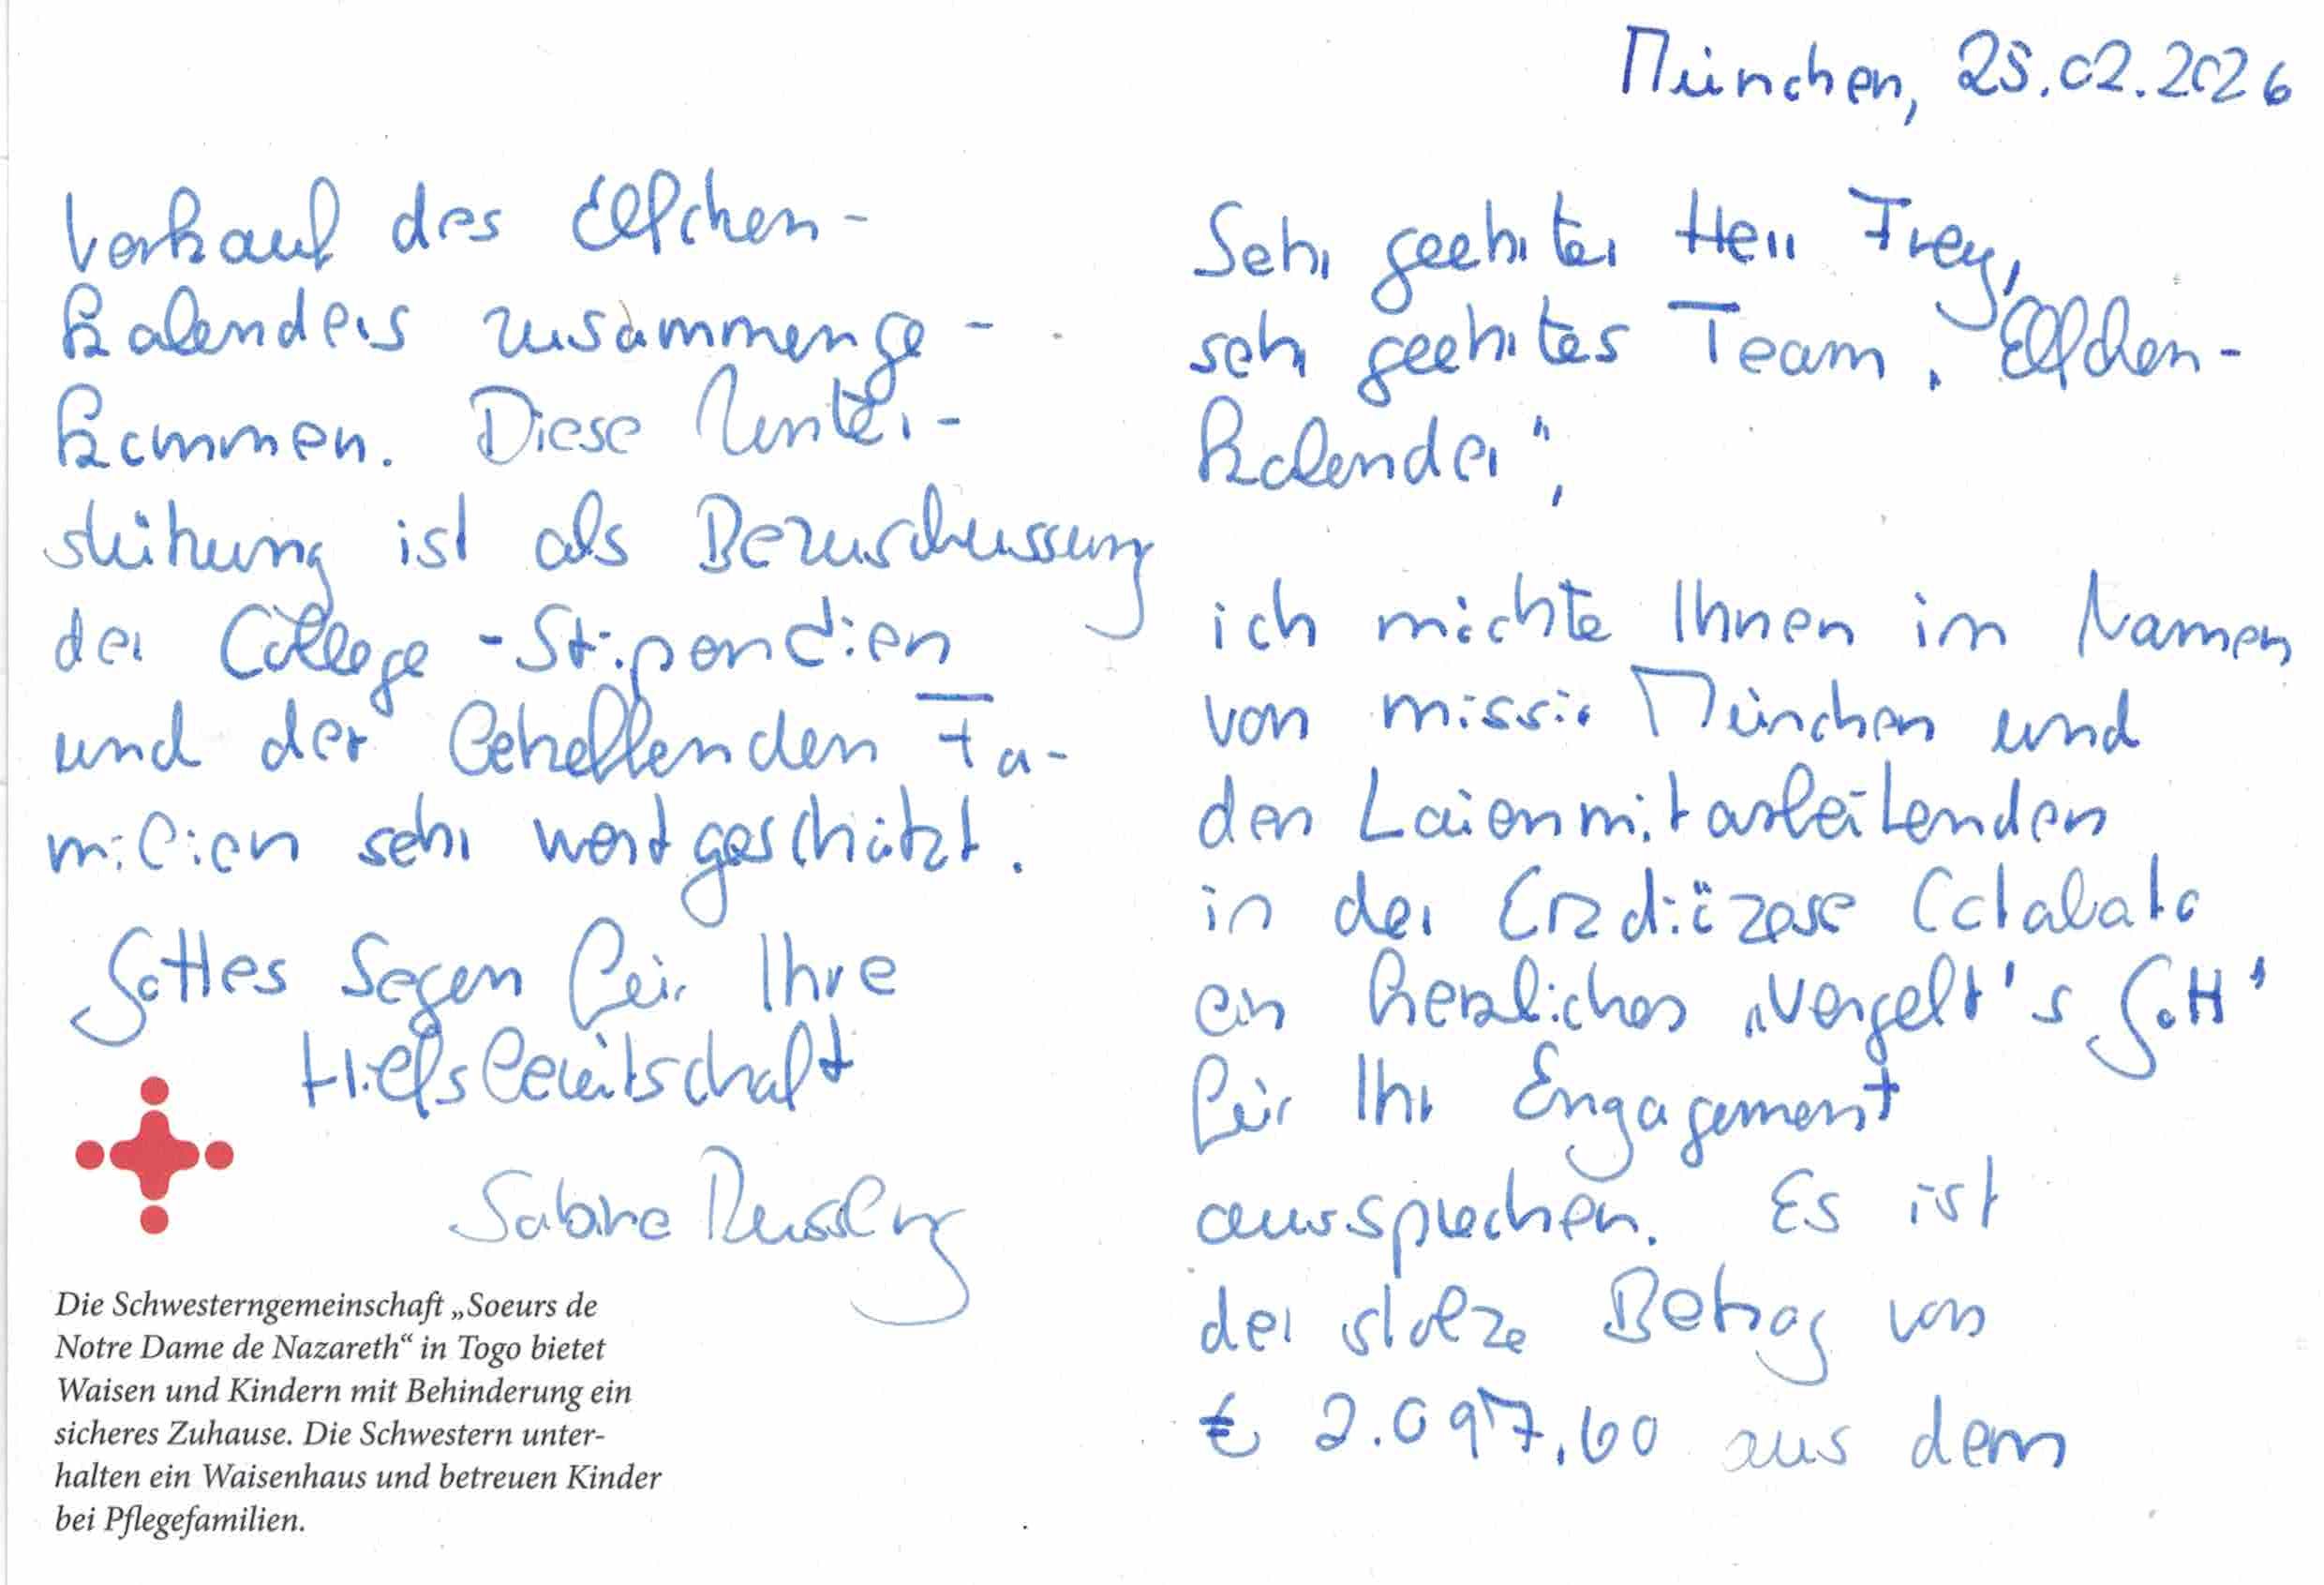 München, 25.02.2026
Sehr geehrter Herr Frey,
sehr geehrtes Team „Elfchen-
kalender“,
ich möchte Ihnen im Namen
von missio München und
den Laienmitarbeitenden
in der Erzdiözese Cotabato
ein herzliches „Vergelt's Gott“
für Ihr Engagement
aussprechen. Es ist
der stolze Betrag von
€ 2.097,60 aus dem
Verkauf des Elfchen-
kalenders zusammenge-
kommen. Diese Unter-
stützung ist als Bezuschussung
der College-Stipendien
und der betreffenden Fa-
milien sehr wertgeschätzt.
Gottes Segen für Ihre
Hilfsbereitschaft
Sabine
Die Schwesterngemeinschaft „Soeurs de
Notre Dame de Nazareth“ in Togo bietet
Waisen und Kindern mit Behinderung ein
sicheres Zuhause. Die Schwestern unter-
halten ein Waisenhaus und betreuen Kinder
bei Pflegefamilien.